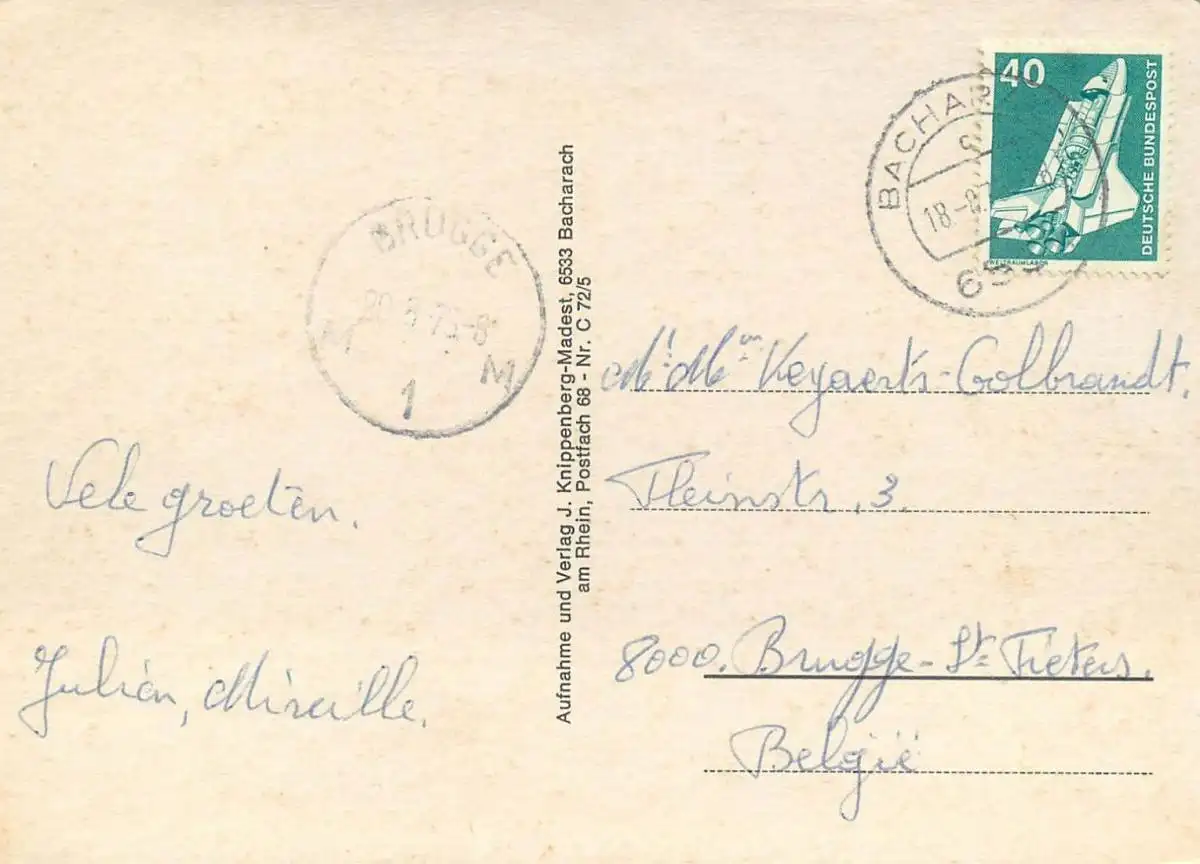 40
DEUTSCHE BUNDESPOST
WELTRAUMLABOR
18.-8.
BRUGGE
M M
1
Aufnahme und Verlag J. Knippenberg-Madest, 6533 Bacharach
am Rhein, Postfach 68 - Nr. C 72/5
Vele groeten.
Julien, Mireille.
Mr. Mevr Keyaerts-Golbrandt,
8000. Brugge-St Pieters.
België